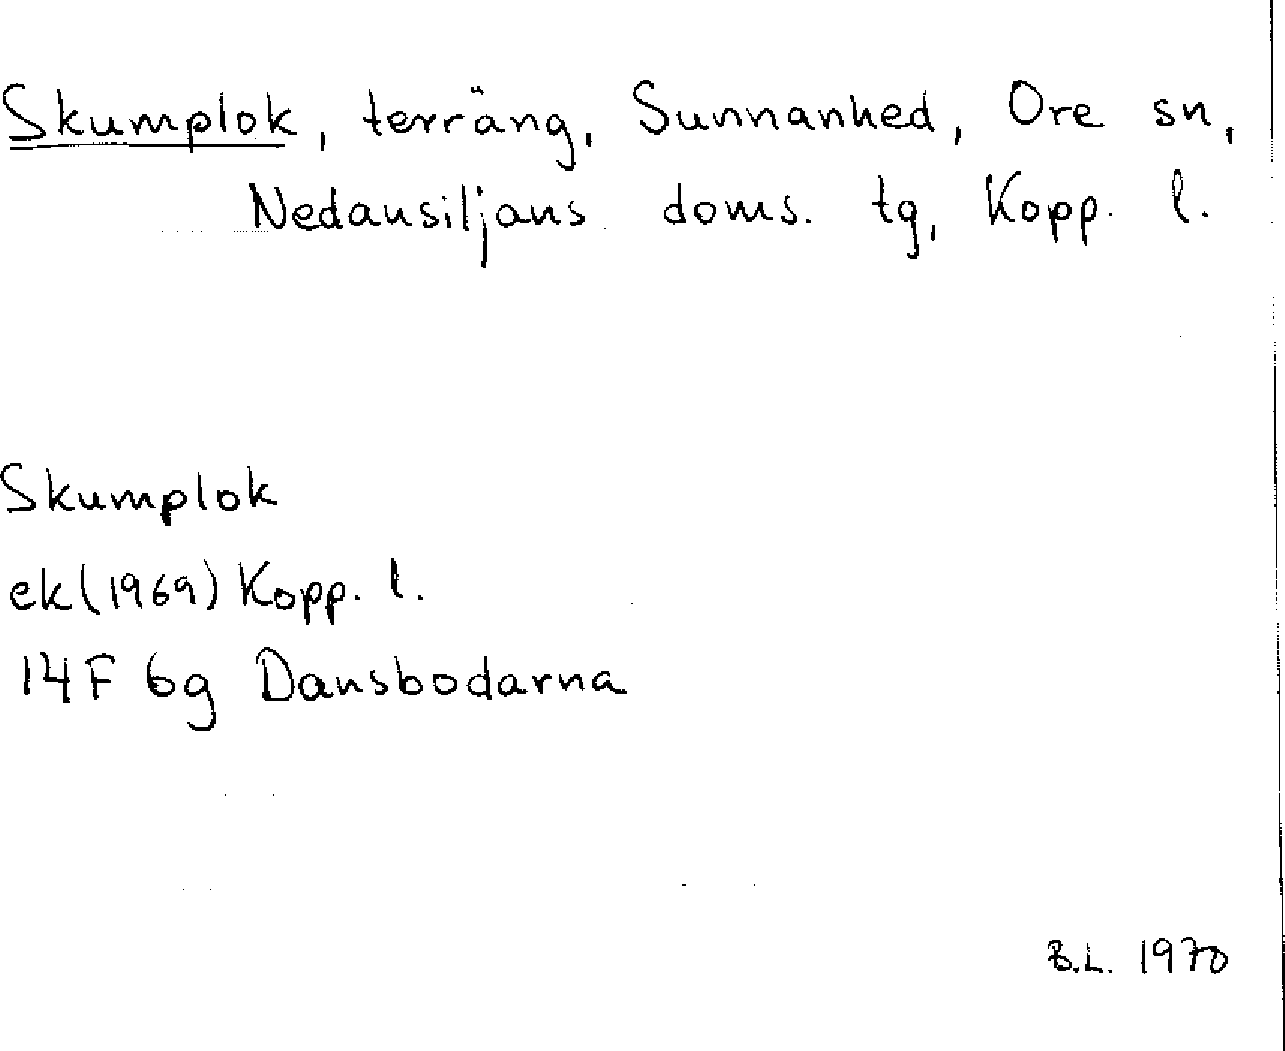 Skumplok, terräng, Sunnanhed, Ore sn,
Nedansiljans doms. tg, Kopp. l.
Skumplok
ek (1969) Kopp. l.
14F 6g Dansbodarna
B.L. 1970